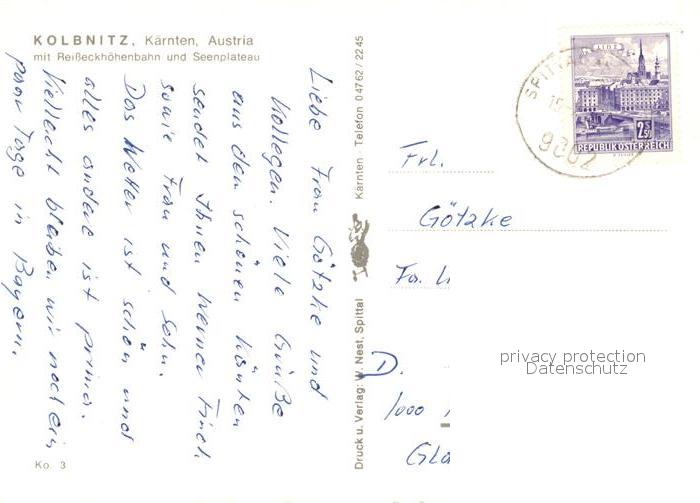 KOLBNITZ, Kärnten, Austria
mit Reißeckhöhenbahn und Seenplateau
Liebe Frau Götzke und
Kollegen. Viele Grüße
aus den schönen Kärnten
sendet Ihnen Werner
sowie Frau und Sohn.
Das Wetter ist schön und
alles andere ist prima.
Vielleicht bleiben wir noch ein
paar Tage in Bayern.
Ko. 3
Druck u. Verlag: W. Nest, Spittal
Kärnten - Telefon 04762/2245
SPITTAL
9802
LINZ
2.50
S
REPUBLIK ÖSTERREICH
Frl.
Götzke
Fa.
D.
1000
privacy protection
Datenschutz